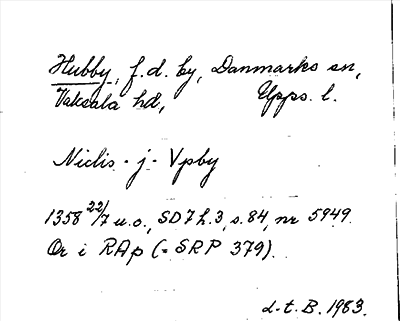 Hubby, f.d. by, Danmarks sn,
Vaksala hd, Upps. l.
Niclis · j · Vpby
1358 22/7 u.o., SD7 h.3, s.84, nr 5949.
Or i RAp (= SRP 379).
L.t.B. 1983.